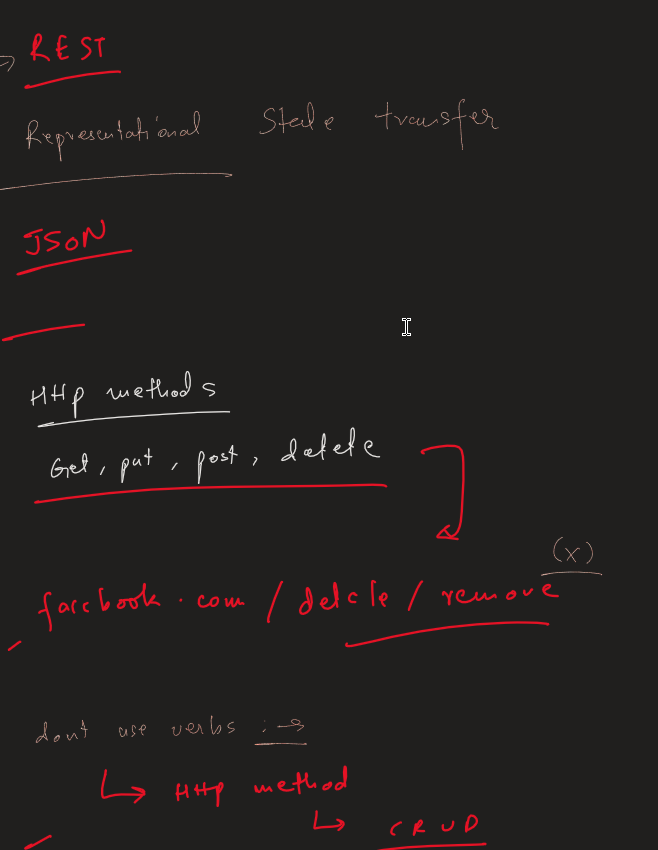 REST
Representational State transfer
JSON
Http methods
Get, put, post, delete
(x)
facebook.com / delete / remove
dont use verbs :→
↳ Http method
↳ CRUD